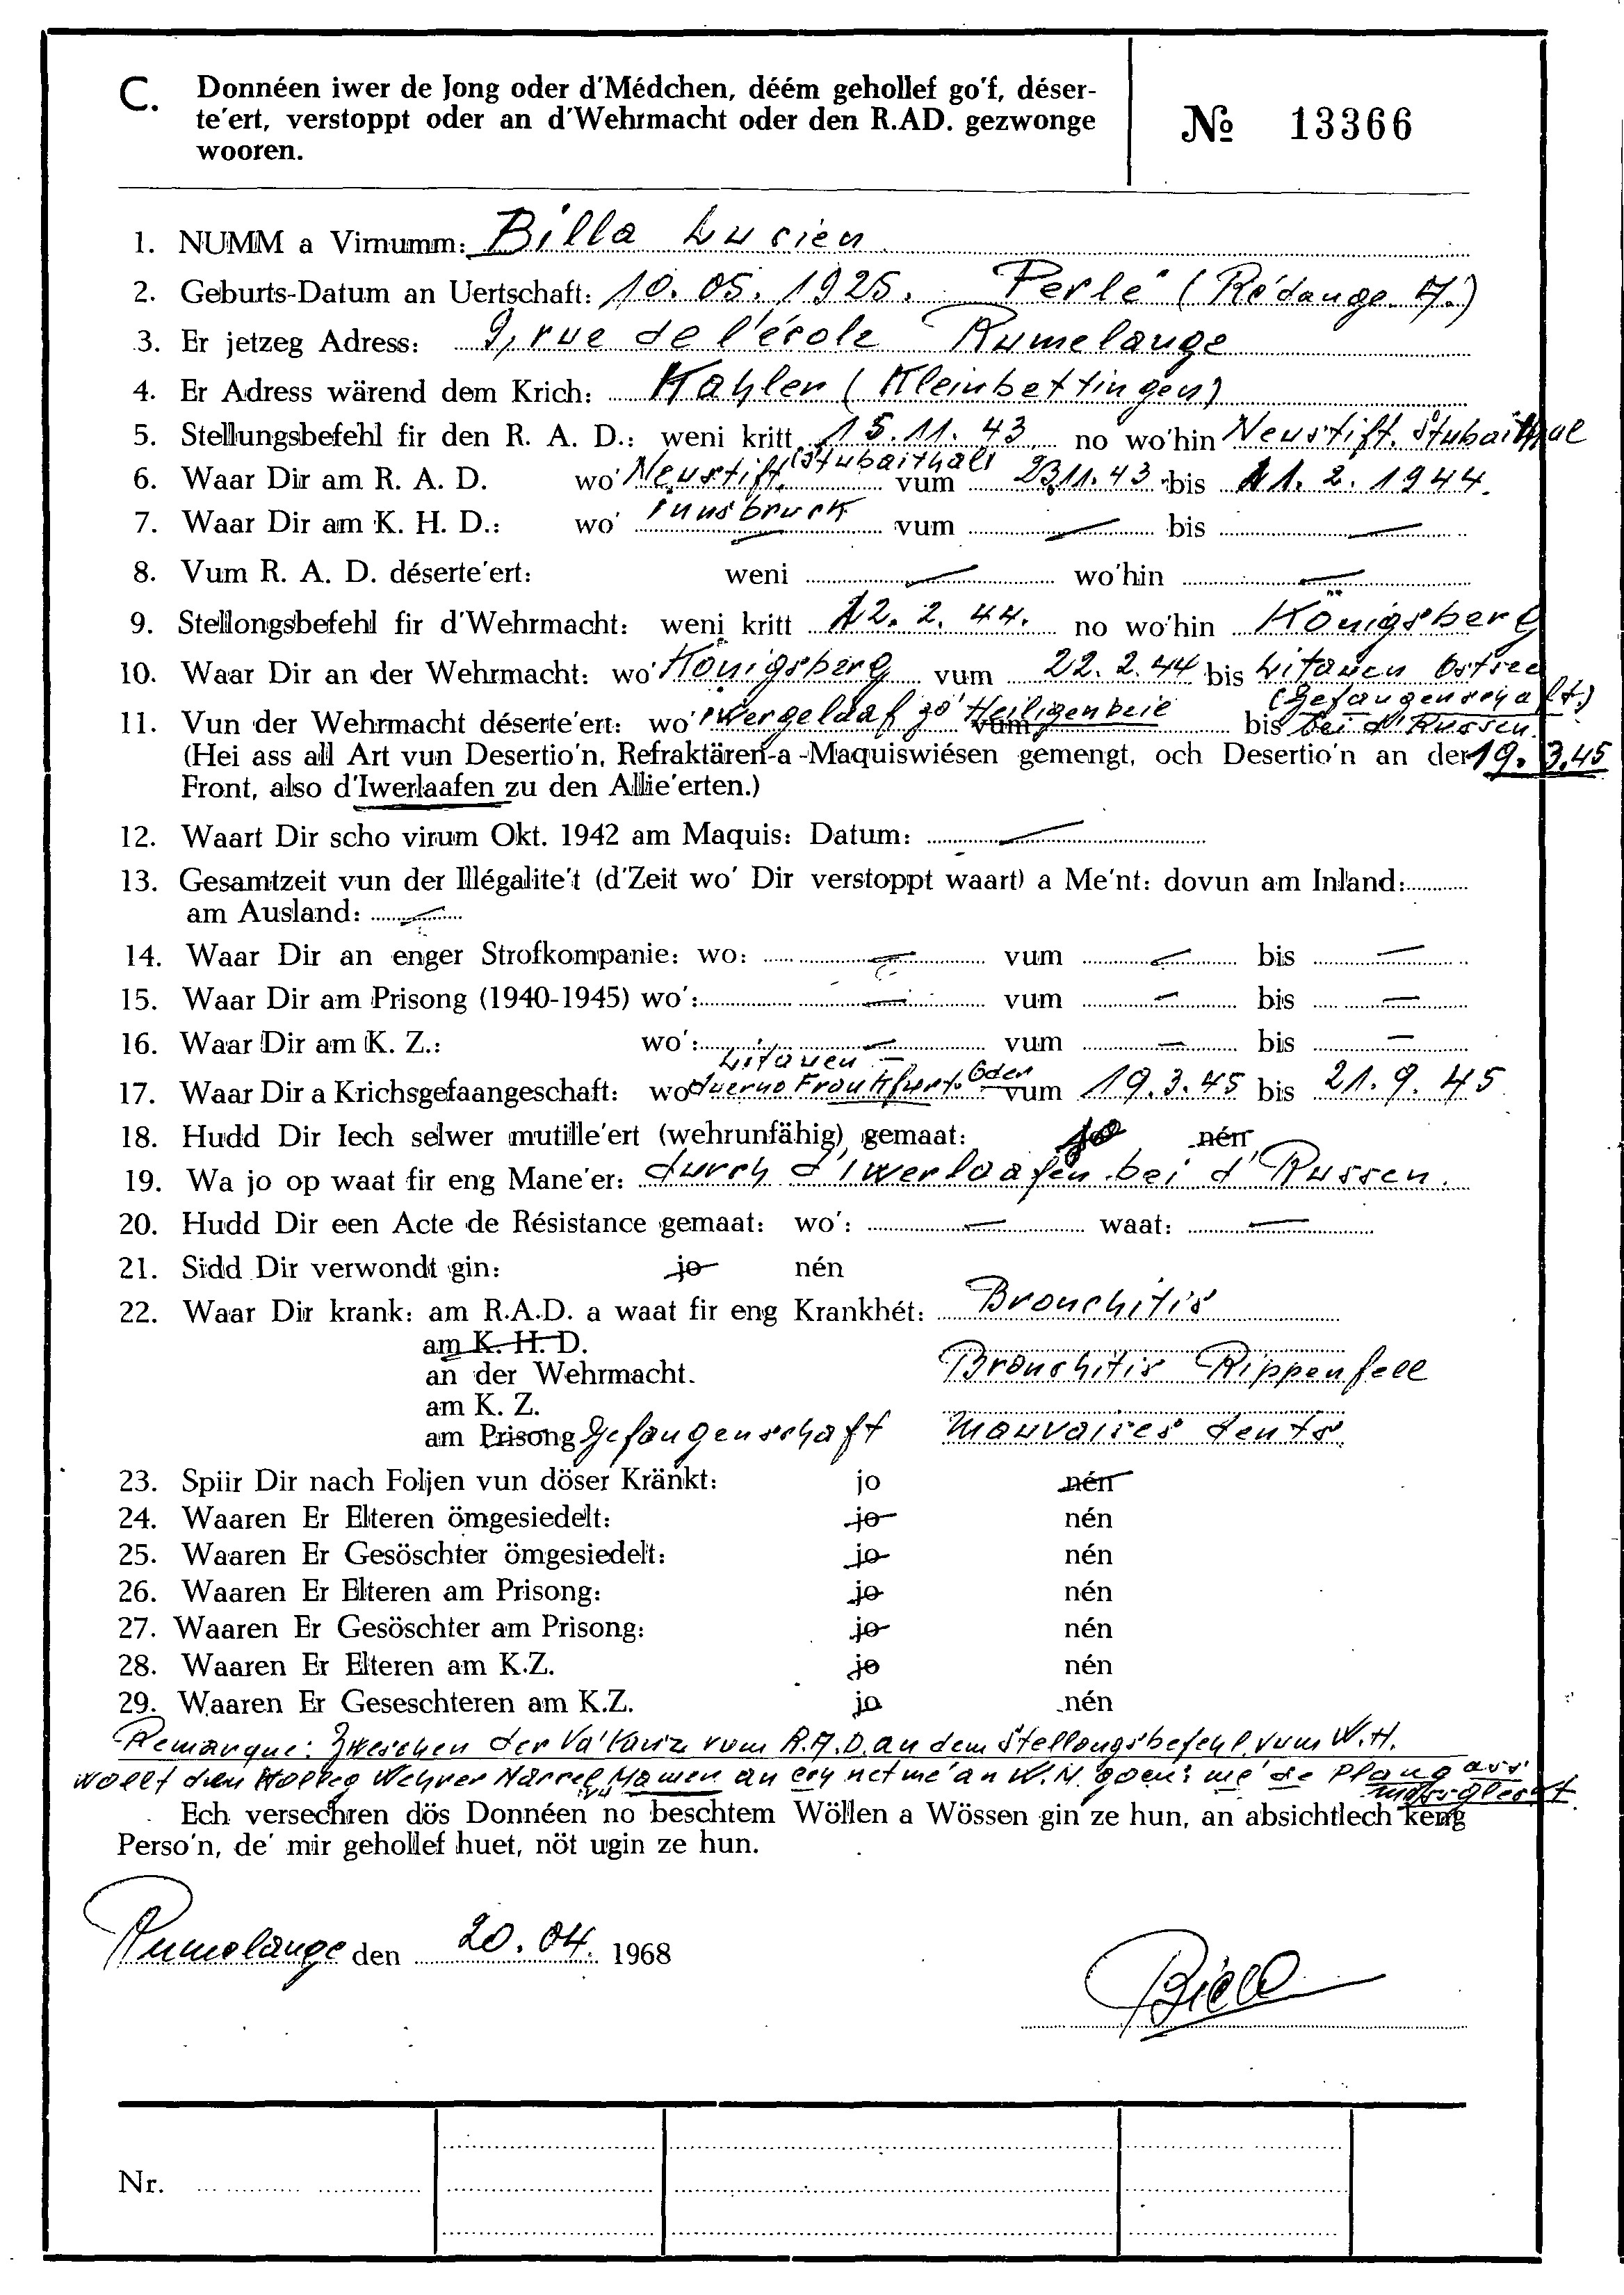 C. Donnéen iwer de Jong oder d'Médchen, déém gehollef go'f, déser-
te'ert, verstoppt oder an d'Wehrmacht oder den R.AD. gezwonge
wooren.
№ 13366
1. NUMM a Virnumm: Billa Lucien
2. Geburts-Datum an Uertschaft: 10. 05. 1925. Perlé (Rédange A.)
3. Er jetzeg Adress: 9, rue de l'école Rumelange
4. Er Adress wärend dem Krich: Kahler (Kleinbettingen)
5. Stellungsbefehl fir den R. A. D.: weni kritt 15. 11. 43 no wo'hin Neustift. Stubaithal
6. Waar Dir am R. A. D. wo' Neustift. (Stubaithal) vum 23.11.43 bis 11. 2. 1944.
7. Waar Dir am K. H. D.: wo' Innsbruck vum — bis —
8. Vum R. A. D. déserte'ert: weni — wo'hin —
9. Stellongsbefehl fir d'Wehrmacht: weni kritt 12. 2. 44. no wo'hin Königsberg
10. Waar Dir an der Wehrmacht: wo' Königsberg vum 22. 2. 44 bis Litauen Ostsee
(Gefangenschaft)
11. Vun der Wehrmacht déserte'ert: wo' iwergelaaf zo' Heiligenbeie vum bis bei d'Russen.
(Hei ass all Art vun Desertio'n, Refraktären-a-Maquiswiésen gemengt, och Desertio'n an der 19. 3.45
Front, also d'Iwerlaafen zu den Allie'erten.)
12. Waart Dir scho virum Okt. 1942 am Maquis: Datum: —
13. Gesamtzeit vun der Illégalite't (d'Zeit wo' Dir verstoppt waart) a Me'nt: dovun am Inland:
am Ausland: —
14. Waar Dir an enger Strofkompanie: wo: — vum — bis —
15. Waar Dir am Prisong (1940-1945) wo': — vum — bis —
16. Waar Dir am K. Z.: wo': — vum — bis —
Litauen —
17. Waar Dir a Krichsgefaangeschaft: wo Frankfurt. Oder vum 19. 3. 45 bis 21. 9. 45
18. Hudd Dir Iech selwer mutille'ert (wehrunfähig) gemaat: jo nén
19. Wa jo op waat fir eng Mane'er: durch d'Iwerlaafen bei d'Russen.
20. Hudd Dir een Acte de Résistance gemaat: wo': — waat: —
21. Sidd Dir verwondt gin: jo nén
22. Waar Dir krank: am R.A.D. a waat fir eng Krankhét: Bronchitis
am K. H. D.
an der Wehrmacht. Bronchitis Rippenfell
am K. Z.
am Prisong Gefangenschaft Mauvaises dents
23. Spiir Dir nach Foljen vun döser Kränkt: jo nén
24. Waaren Er Elteren ömgesiedelt: jo nén
25. Waaren Er Gesöschter ömgesiedelt: jo nén
26. Waaren Er Elteren am Prisong: jo nén
27. Waaren Er Gesöschter am Prisong: jo nén
28. Waaren Er Elteren am K.Z. jo nén
29. Waaren Er Geseschteren am K.Z. jo nén
Remarque: Zweschen der Va'kanz vum R.A.D. an dem Stellongsbefehl vum W.H.
wollt den Kolleg Wehrer Marcel Mamer an ech net me' an W.M. goen: me' de Plang ass
Ech versechren dös Donnéen no beschtem Wöllen a Wössen gin ze hun, an absichtlech keng
Perso'n, de' mir gehollef huet, nöt ugin ze hun.
Rumelange den 20. 04. 1968
Billa
Nr.